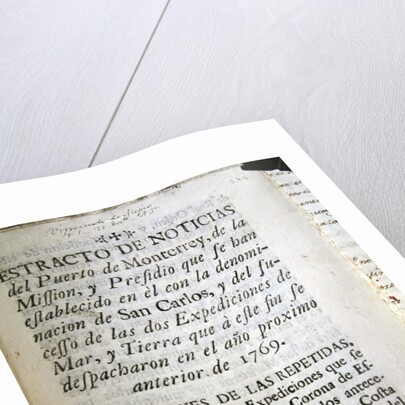 ESTRACTO DE NOTICIAS
del Puerto de Monterrey, de la
Mission, y Presidio que se han
establecido en èl con la denomi-
nacion de San Carlos, y del su-
cesso de las dos Expediciones de
Mar, y Tierra que à este fin se
despacharon en el año proximo
anterior de 1769.
DE LAS REPETIDAS,
Expediciones que se
Corona de Es-
antece-
Costa